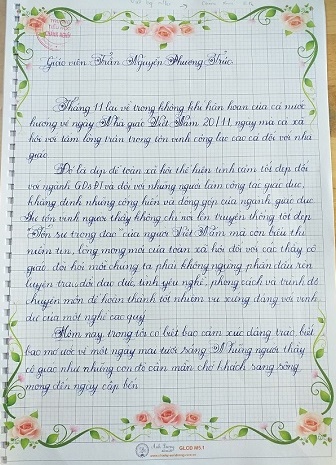 Giáo viên: Trần Nguyễn Phương Trúc
Tháng 11 lại về trong không khí hân hoan của cả nước
hướng về ngày Nhà giáo Việt Nam 20/11 ngày mà cả xã
hội với tấm lòng trân trọng tôn vinh công lao cao cả đối với nhà
giáo
Đó là dịp để toàn xã hội thể hiện tình cảm tốt đẹp đối
với ngành GD&ĐT và đối với những người làm công tác giáo dục,
khẳng định những cống hiến và đóng góp của ngành giáo dục
Sự tôn vinh người thầy không chỉ nói lên truyền thống tốt đẹp
"Tôn sư trọng đạo" của người Việt Nam mà còn biểu thị
niềm tin, lòng mong mỏi của toàn xã hội đối với các thầy cô
giáo đòi hỏi mỗi chúng ta phải không ngừng phấn đấu rèn
luyện trau dồi đạo đức, tình yêu nghề, phong cách và trình độ
chuyên môn để hoàn thành tốt nhiệm vụ xứng đáng với vinh
dự của một nghề cao quý
Hôm nay, trong tôi có biết bao cảm xúc dâng trào, biết
bao mơ ước về một ngày mai tươi sáng. Những người thầy
cô giáo như những con đò cần mẫn chở khách sang sông
mong đến ngày cập bến
Anh Dương
GLCD M51